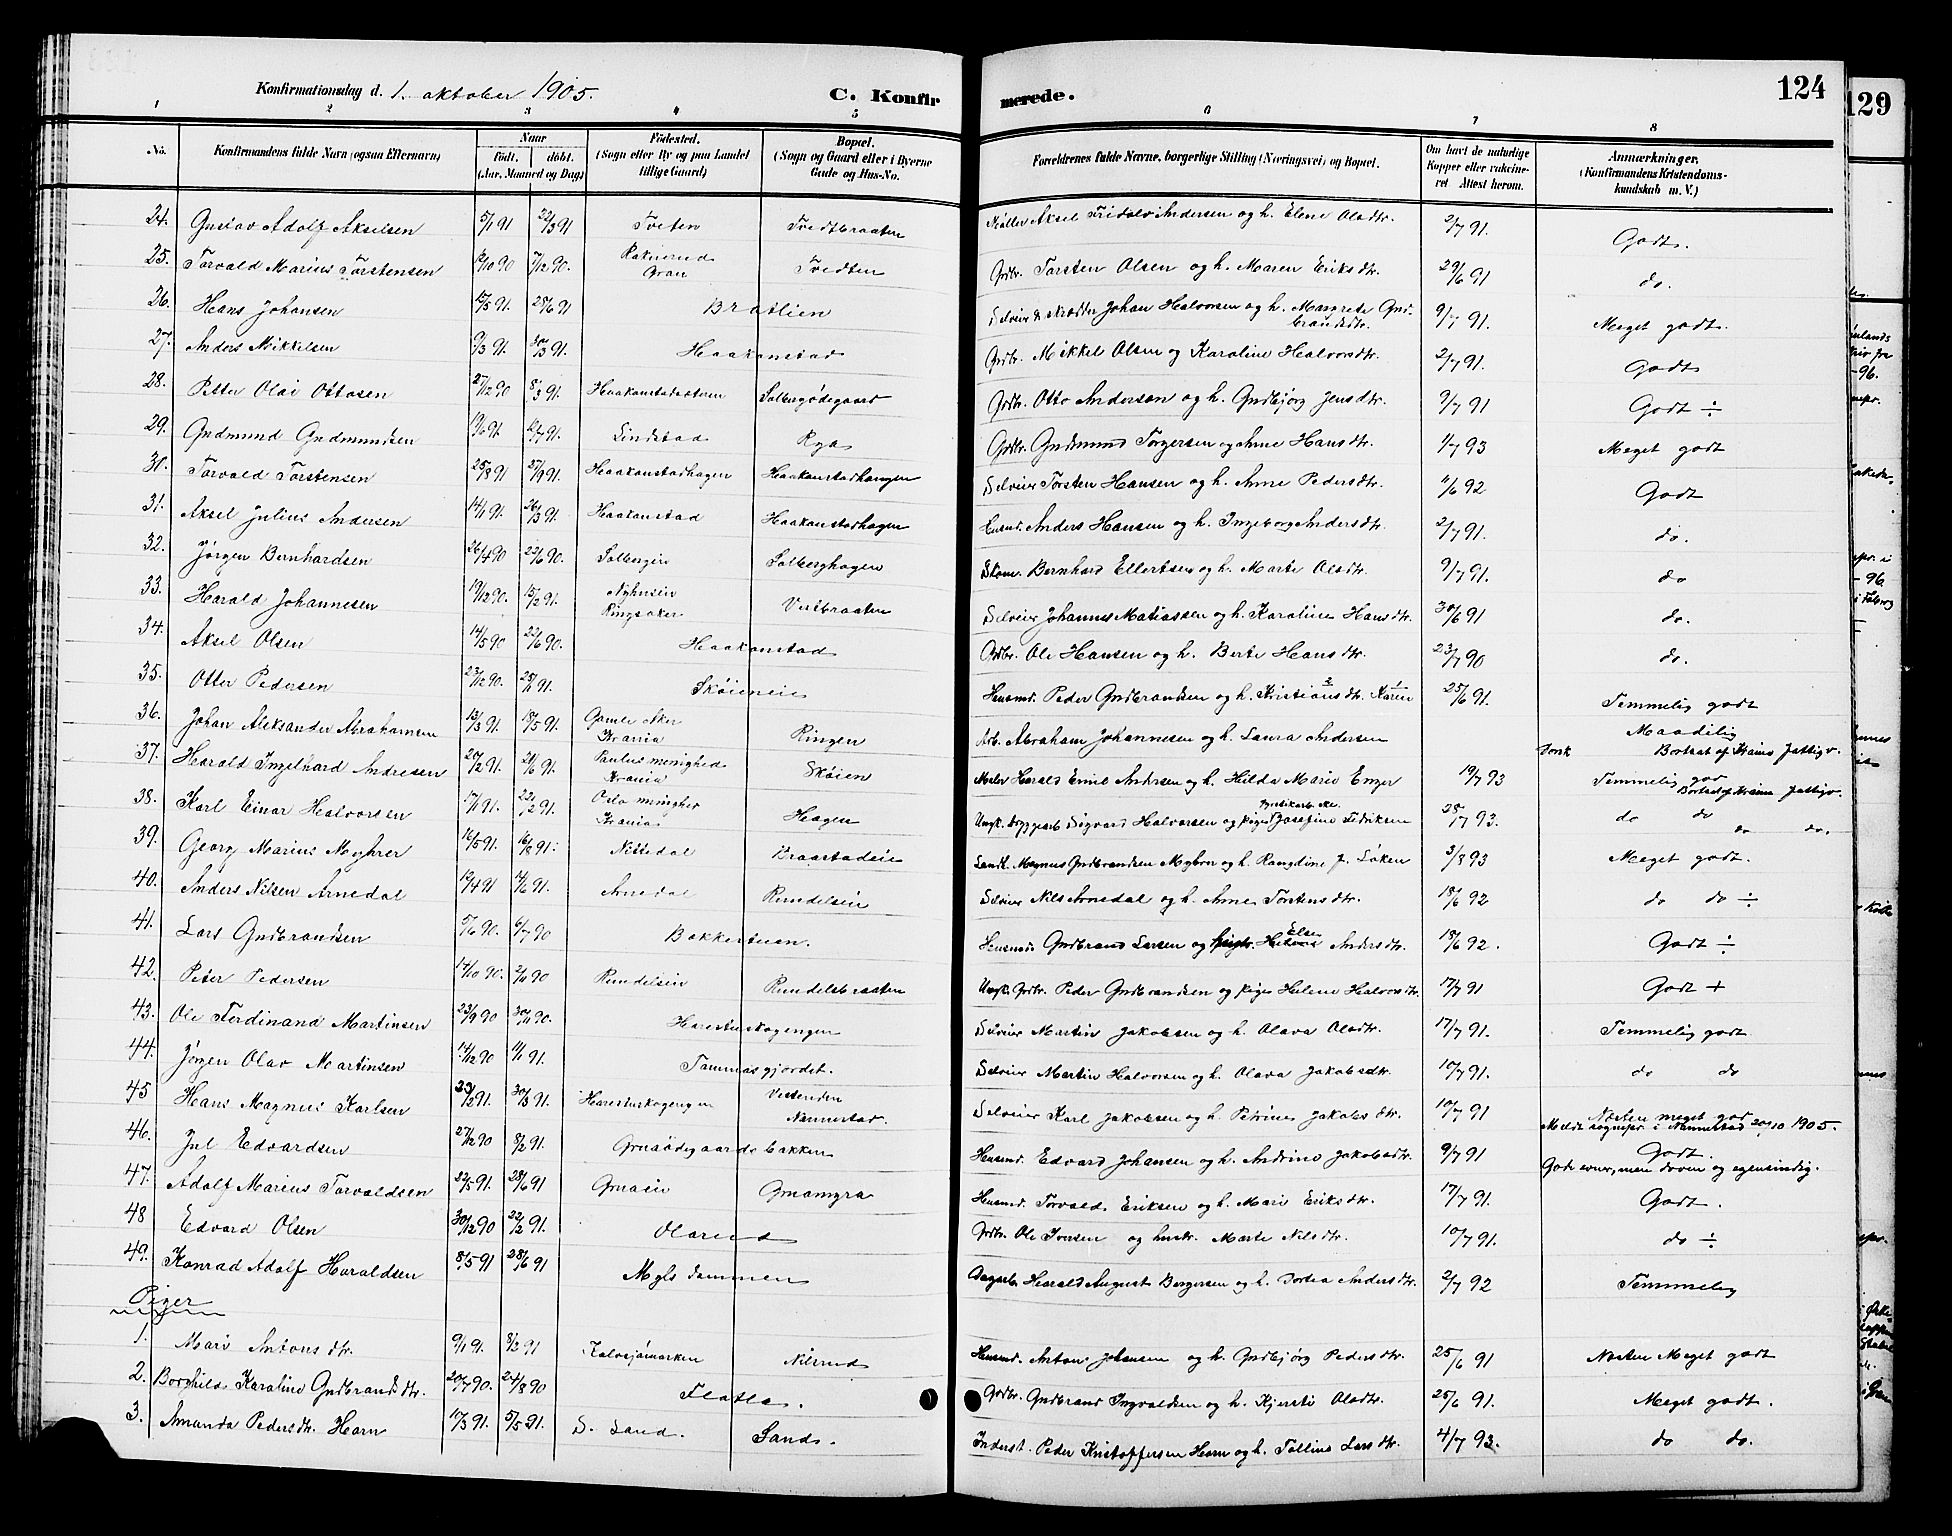 Konfirmationsdag d. 1. oktober 1905. C. Konfirmerede. 124
129
1 2 3 4 5 6 7 8
No. Konfirmandens fulde Navn (ogsaa Efternavn) Naar født. døbt. (Aar, Maaned og Dag) Fødested. (Sogn eller By og paa Landet tillige Gaard) Bopæl. (Sogn og Gaard eller i Byerne Gade og Hus-No. Forældrenes fulde Navne, borgerlige Stilling (Næringsvei) og Bopæl. Om havt de naturlige Kopper eller vaccineret Attest herom. Anmærkninger. (Konfirmandens Kristendomskundskab m. V.)
24. Gustav Adolf Akselsen 5/1 91 22/3 91 Tveten Tvedtbraaten Aksel Fridolv Andersen og h. Elene Olsdtr. 2/7 91. Godt.
25. Torvald Marius Torstensen 12/10 90 7/12 90. Raknerud Gran Tvedten Grdbr. Torsten Olsen og h. Maren Eriksdtr. 29/6 91 do.
26. Hans Johansen 15/5 91. 28/6 91 Bratlien Selveier & skrædder Johan Halvorsen og h. Margrete Gudbrandsdtr. 9/7 91. Meget godt.
27. Anders Mikkelsen 9/3 91. 30/3 91. Haakenstad Grdbr. Mikkel Olsen og Karoline Halvorsdtr. 2/7 91. Godt
28. Petter Olai Ottosen 27/12 90 8/3 91. Haakenstadeteren Solbergødegaard Grdbr. Otto Anderson og h. Gudbjørg Jensdtr. 9/7 91 Godt ÷
29. Gudmund Gudmundsen 19/6 91. 12/7 91. Lindstad Rya Grdbr. Gudmund Torgersen og Anne Hansdtr. 4/7 93 Meget godt
30. Torvald Torstensen 25/8 91 27/9 91. Haakenstadhagen Haakenstadhaugen Selveier Torsten Hansen og h. Anne Pedersdtr. 11/6 92 Godt
31. Aksel Julius Andersen 14/1 91. 26/3 91. Haakenstad Haakenstadhagen Husmd. Anders Hansen og h. Ingeborg Andersdtr. 2/7 91. do.
32. Jørgen Bernhardsen 26/4 90 22/6 90. Solbergeie Solberghagen Skom. Bernhard Ellertsen og h. Marte Olsdtr. 9/7 91. do
33. Harald Johannesen 19/12 90 15/2 91. Nyhusein Ringsaker Vestbraaten Selveier Johannes Matiassen og h. Karoline Hansdtr. 30/6 91 do.
34. Aksel Olsen 14/5 90 22/6 90. Haakenstad Grdbr. Ole Hansen og h. Berte Hansdtr. 23/7 90 do.
35. Otter Pedersen 23/12 90. 25/1 91. Skøieneie Husmd. Peder Gudbrandsen og h. Kristiansdtr. Karen 25/6 91. Temmelig godt
36. Johan Aleksander Abrahamsen 13/3 91. 18/5 91. Gamle Aker Krania Ringen Arb. Abraham Johannesen og h. Laura Andersen Maadelig Bortsat af Krania fattigv.
37. Harald Ingelhard Andresen 20/2 91. 21/6 91. Paulus menighed Krania Skøien Maler Harald Emil Andrsen og h. Hilda Marie Enger 19/7 93 Temmelig god Bortsat af Krania fattigv.
38. Karl Einar Halvorsen 17/1 91. 22/2 91. Oslo menighed Krania Hagen Ungk. Bryggearb. Sigvard Halvorsen og pige Josefine Fredriksen 28/7 93. do do do do.
39. Georg Marius Myhrer 16/5 91. 16/8 91. Nittedal Braastadeie Landh. Magnus Gudbrandsen Myhrer og h. Rangdine f. Løken 3/8 93 Meget godt.
40. Anders Nilsen Arnedal 12/4 91 14/6 91. Arnedal Rundelseie Selveier Nils Arnedal og h. Anne Torstensdtr. 18/6 92 do do ÷
41. Lars Gudbrandsen 5/6 90. 6/7 90 Bakkertuen. Husmand Gudbrand Larsen og Elsen Andersdtr. 18/6 92. Godt ÷
42. Peter Pedersen 14/10 90. 2/11 90 Rundelseie Rundelsbraaten Ungk. Grdbr. Peder Gudbrandsen og pige Helene Halvorsdtr. 17/7 91 Godt +
43. Ole Ferdinand Martinsen 23/9 90 30/11 90. Harestuskogengen Selveier Martin Jakobsen og h. Olava Olsdtr. 17/7 91. Temmelig godt
44. Jørgen Olav Martinsen 14/12 90 11/1 91. Tammasgjordet. Selveier Martin Halvorsen og h. Olava Jakobsdtr. 10/7 91. do do
45 Hans Magnus Karlsen 23/2 91. 30/3 91. Harestuskogengen Vestenden Nannestad. Selveier Karl Jakobsen og h. Petrine Jakobsdtr. 10/7 91 Næsten meget god Meldt sognepr. i Nannestad 20/10 1905.
46. Jul Edvardsen 27/12 90 8/2 91. Gruaødegaardsbakken Husmd. Edvard Johansen og h. Andrine Jakobsdtr. 9/7 91 Godt. Gode evner, men doven og egensindig.
47. Adolf Marius Torvaldsen 22/5 91. 28/6 91 Gruaeie Gruamyra Husmd. Torvald Eriksen og h. Mari Eriksdtr. 17/7 91. Godt.
48 Edvard Olsen 30/12 90 22/2 91. Olerud Grdbr. Ole Iversen og hustr. Marte Nilsdtr. 10/7 91. do ÷
49. Konrad Adolf Haraldsen 8/5 91 28/6 91 Myls dammen Dagarb. Harald August Bergersen og h. Dortea Andersdtr. 2/7 92 Temmelig
Piger
1. Mari Antonsdtr. 9/1 91. 8/2 91 Kalvsjømarken Nilerud Husmd. Anton Johansen og h. Gudbjørg Pedersdtr. 25/6 91 Næsten Meget godt
2. Borghild Karoline Gudbrandsdtr. 20/7 90. 24/8 90 Flatla. Grdbr. Gudbrand Ingvaldsen og h. Kjersti Olsdtr. 25/6 91. Meget godt.
3. Amanda Pedersdtr. Horn 10/3 91. 5/5 91. S. Sand. Sands. Inderst. Peder Kristoffersen Horn og h. Telline Larsdtr. 4/7 93. do do.